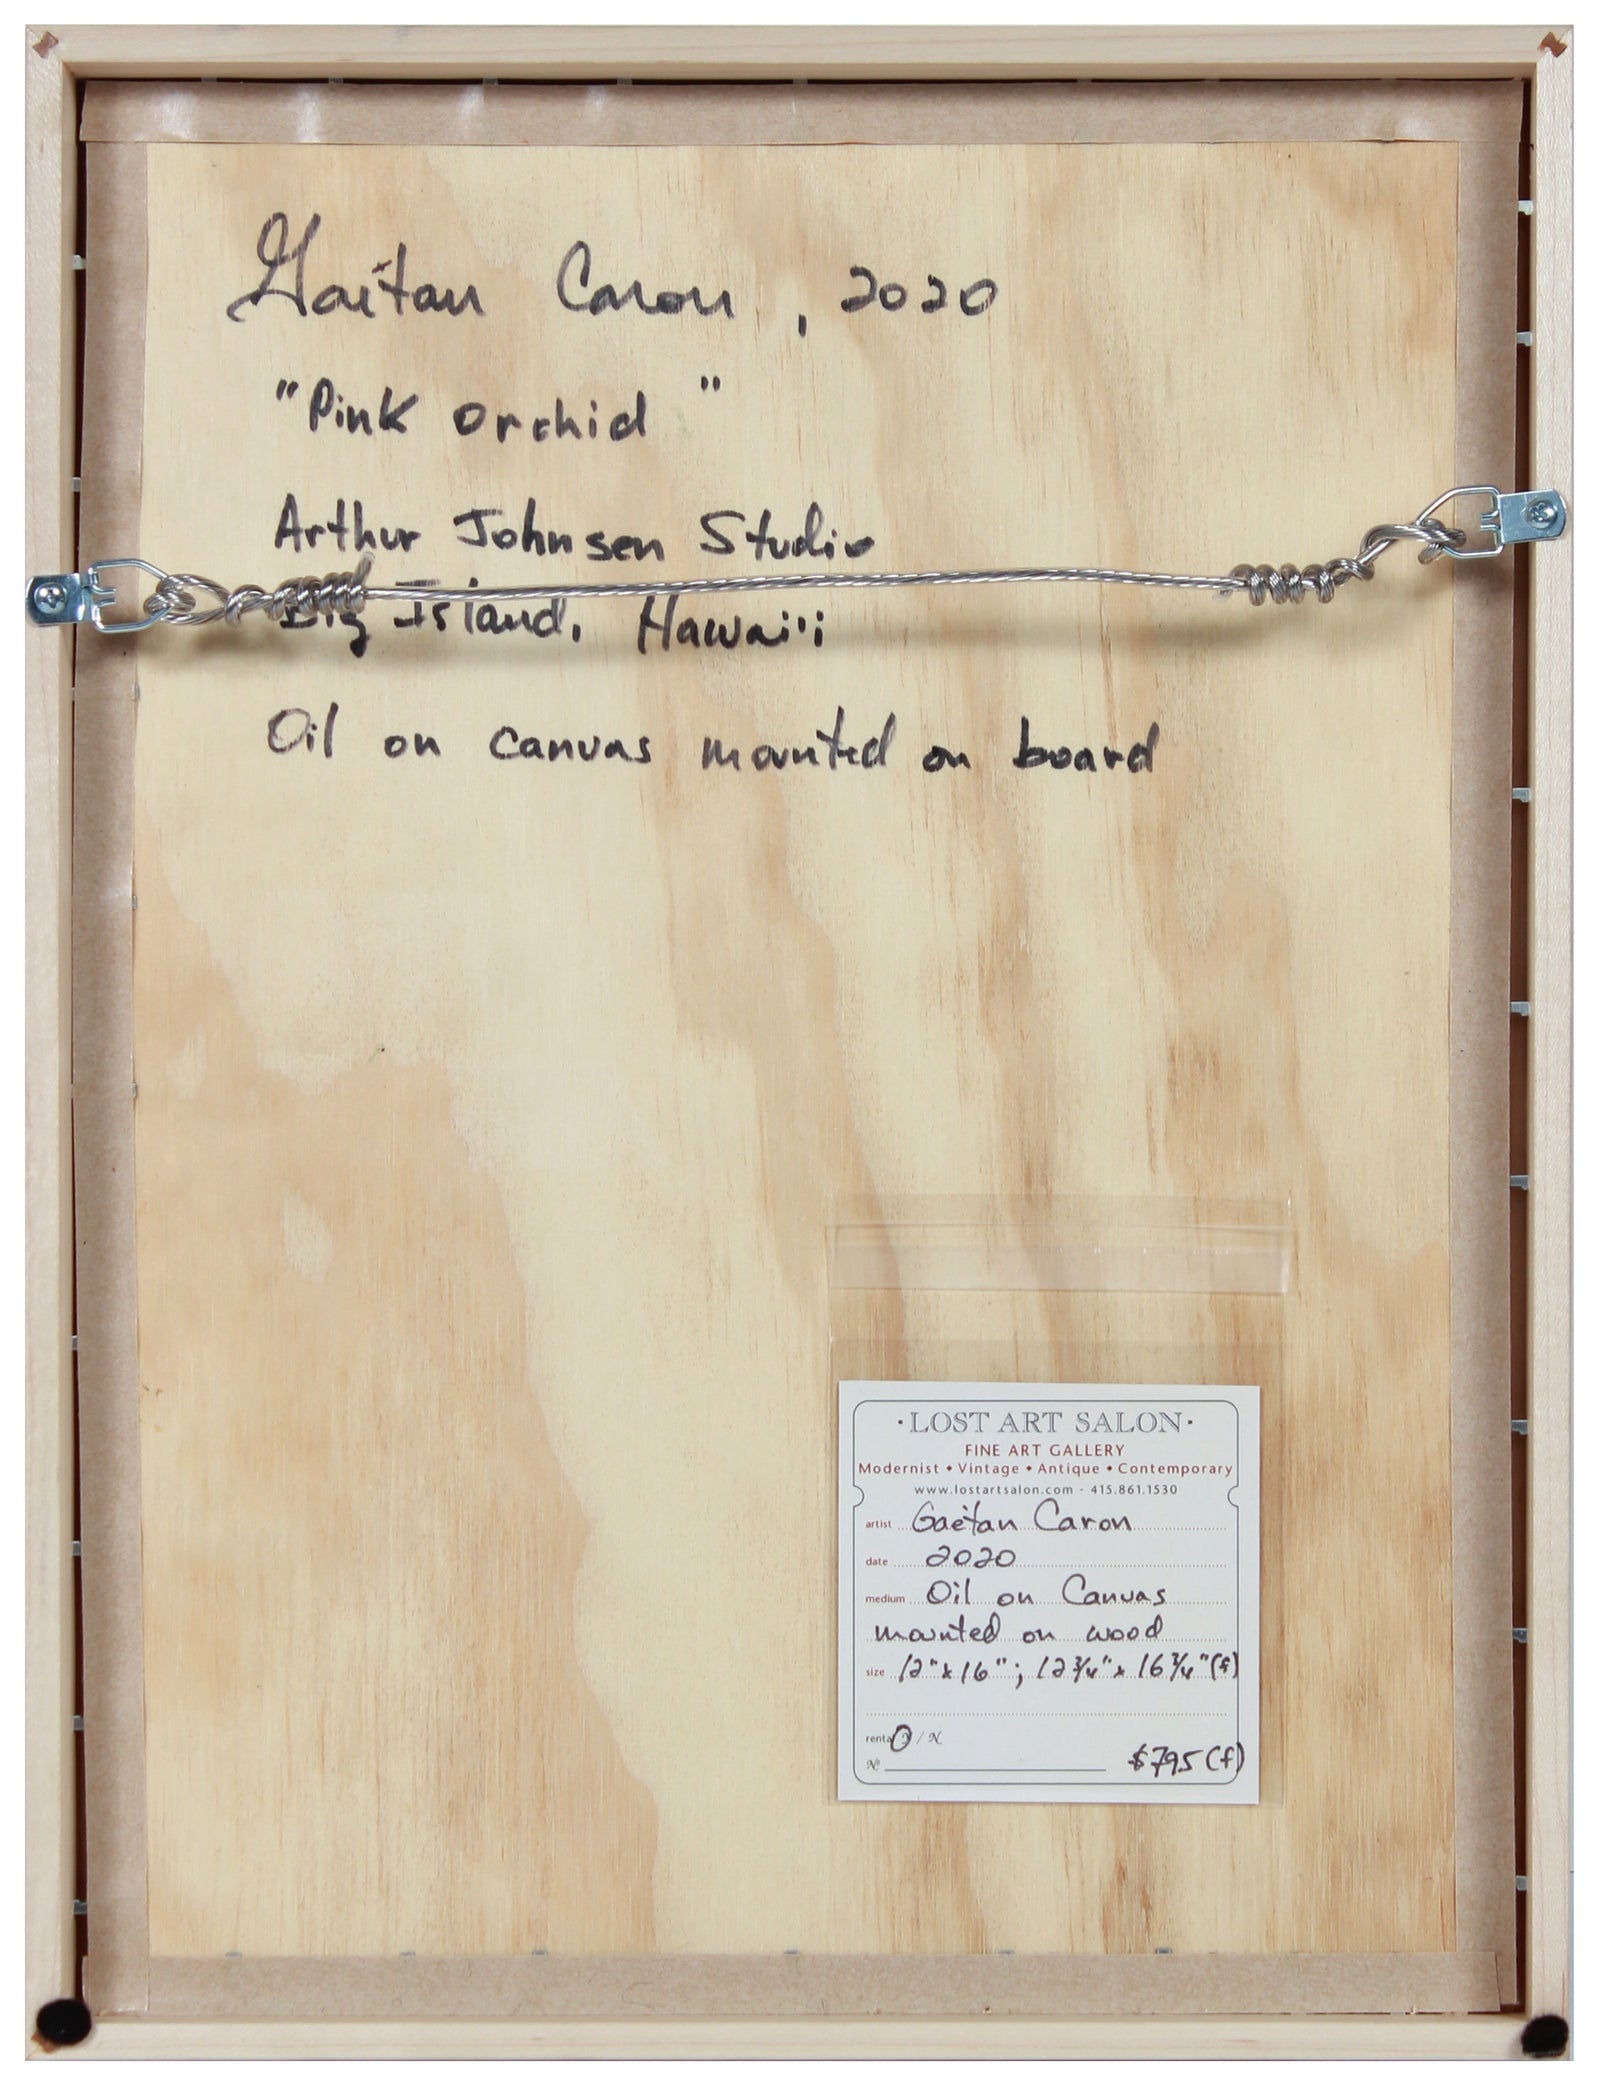 Gaétan Caron, 2020
"Pink Orchid"
Arthur Johnsen Studio
Big Island, Hawai'i
Oil on canvas mounted on board
·LOST ART SALON·
FINE ART GALLERY
Modernist • Vintage • Antique • Contemporary
www.lostartsalon.com - 415.861.1530
artist Gaétan Caron
date 2020
medium Oil on Canvas
mounted on wood
size 12" x 16"; 12 3/4" x 16 3/4" (f)
/ N
№ $795 (f)